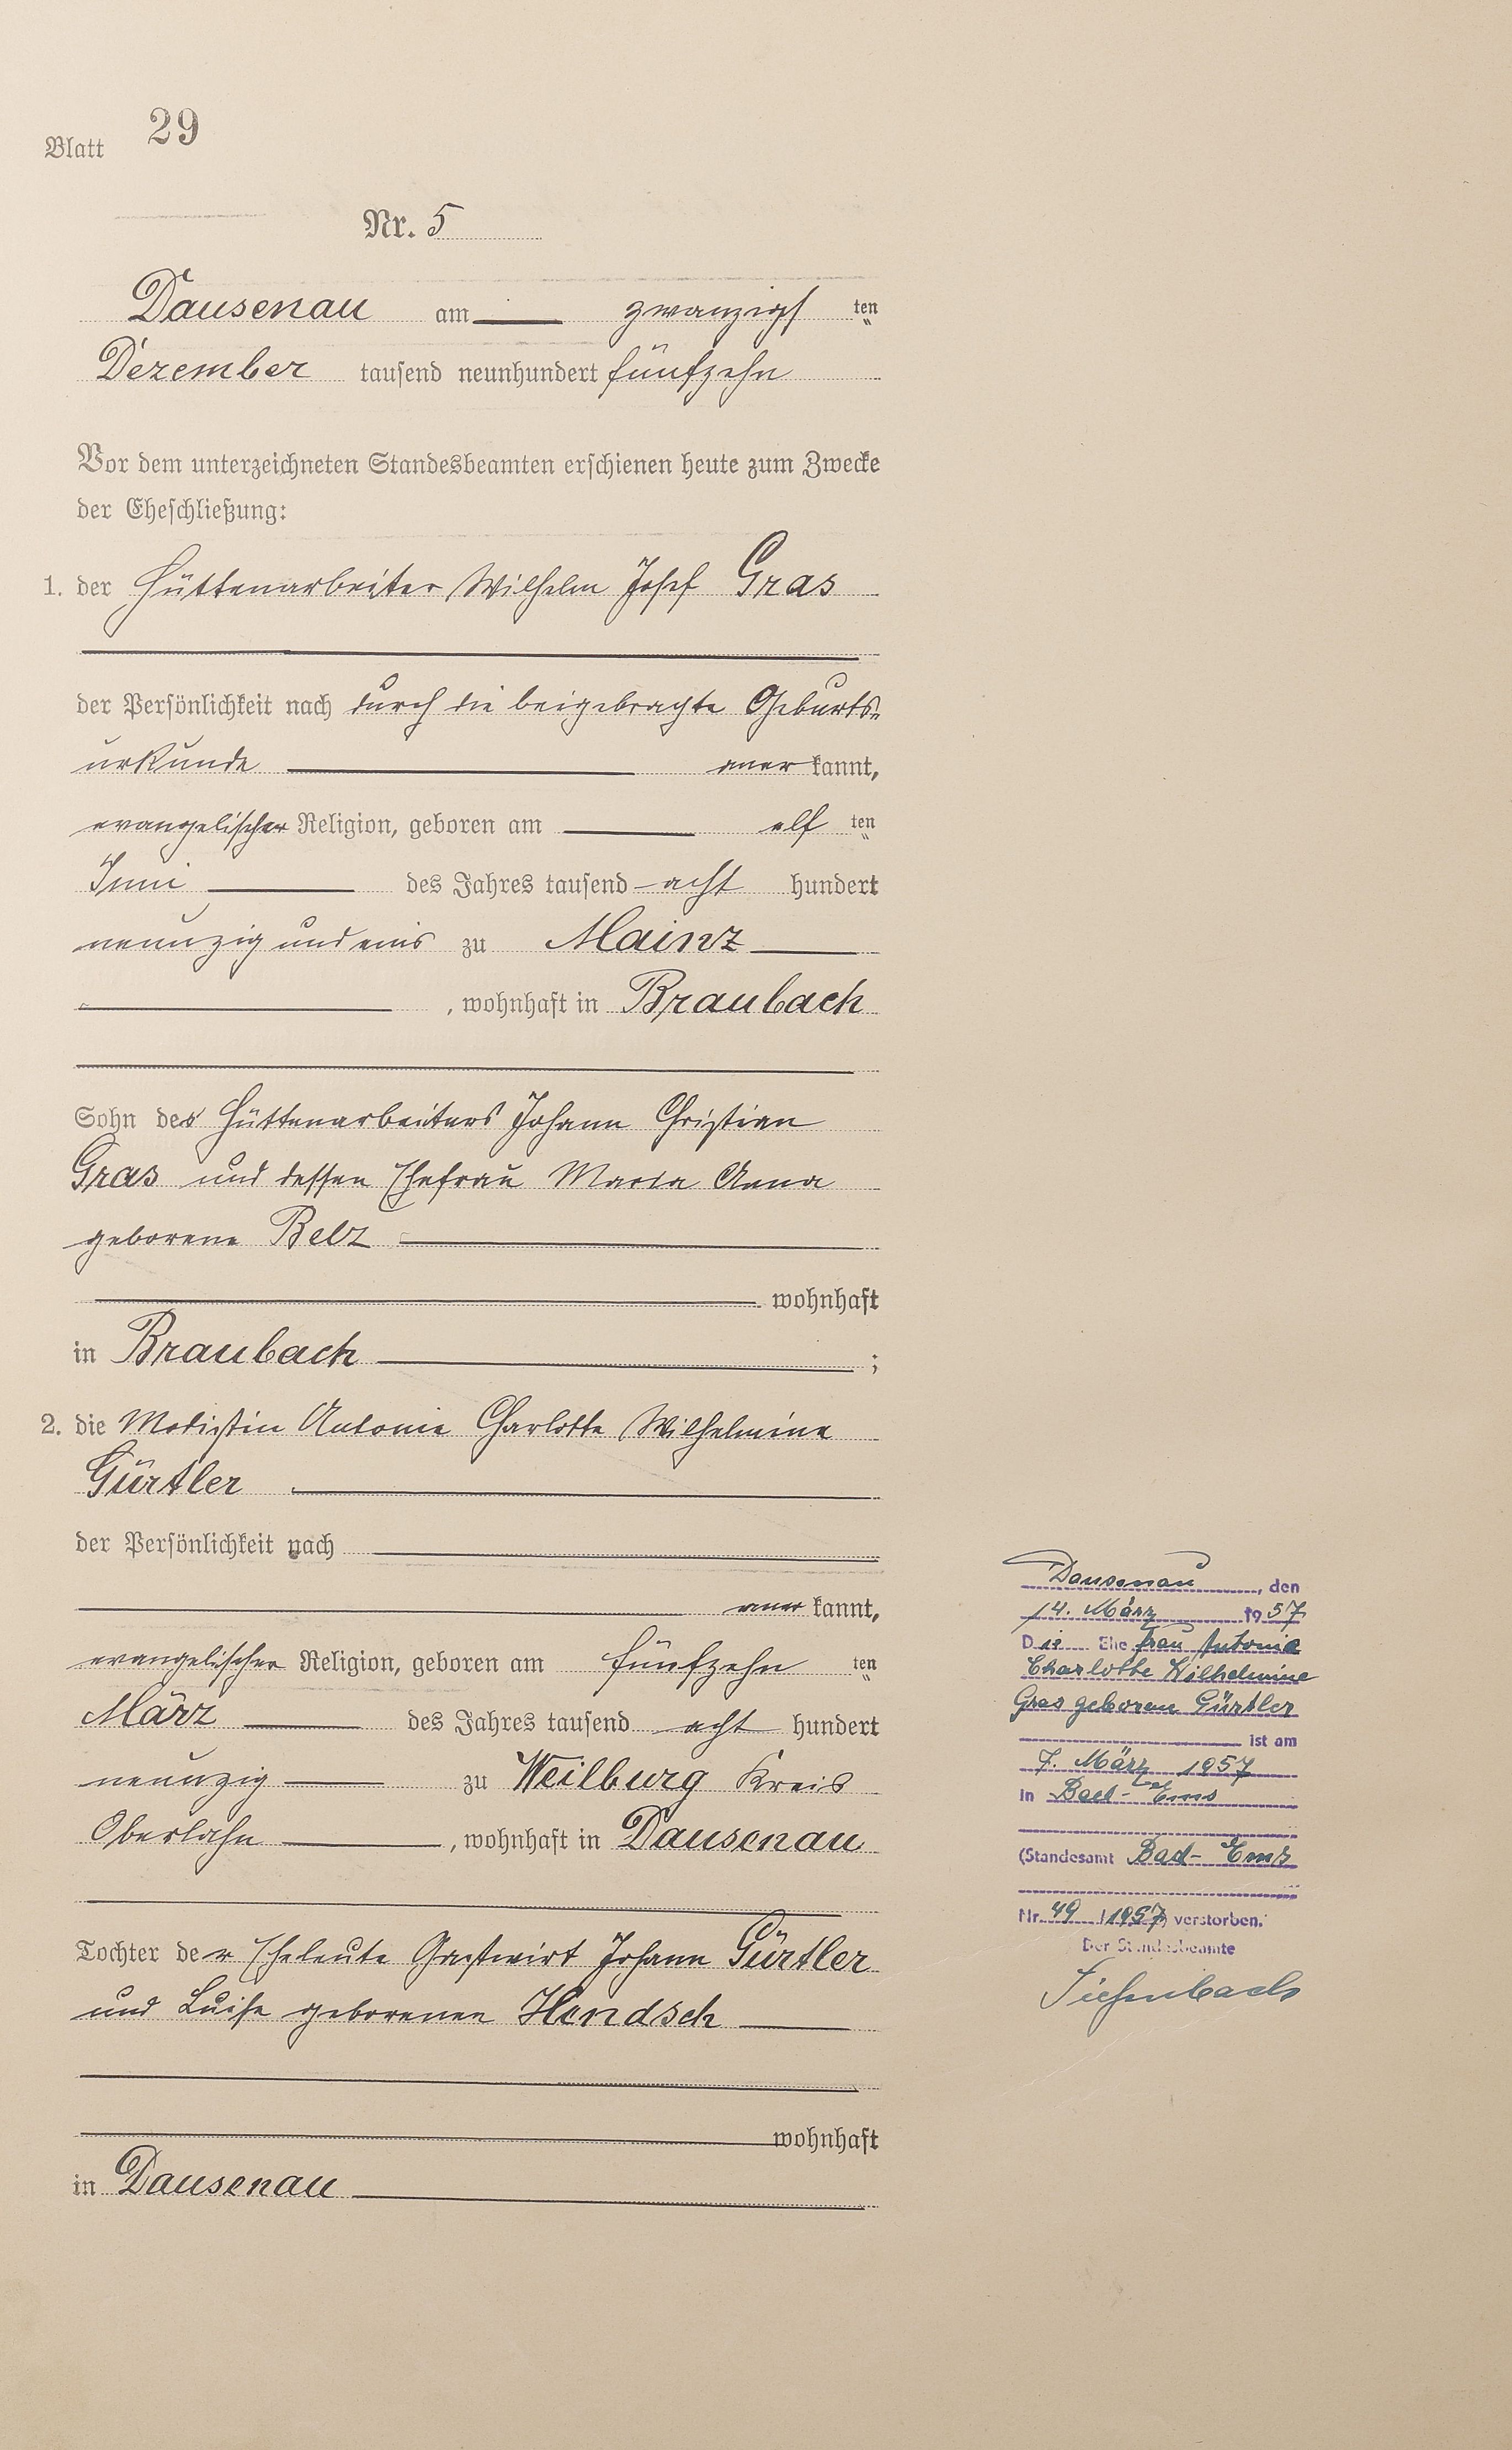 Blatt 29
Nr. 5
Dausenau am zwanzigsten
Dezember tausend neunhundert fünfzehn
Vor dem unterzeichneten Standesbeamten erschienen heute zum Zwecke
der Eheschließung:
1. der Hüttenarbeiter Wilhelm Josef Gras
der Persönlichkeit nach durch die beigebrachte Geburts-
urkunde anerkannt,
evangelischer Religion, geboren am elften
Juni des Jahres tausend acht hundert
neunzig und eins zu Mainz
, wohnhaft in Braubach
Sohn des Hüttenarbeiters Johann Christian
Gras und dessen Ehefrau Maria Anna
geborene Belz
wohnhaft
in Braubach ;
2. die Modistin Antonie Charlotte Wilhelmine
Gürtler
der Persönlichkeit nach
anerkannt,
evangelischer Religion, geboren am fünfzehnten
März des Jahres tausend acht hundert
neunzig zu Weilburg Kreis
Oberlahn , wohnhaft in Dausenau
Tochter der Eheleute Gastwirt Johann Gürtler
und Luise geborenen Hendsch
wohnhaft
in Dausenau
Dausenau, den
14. März 1957
Die Ehefrau Antonie
Charlotte Wilhelmine
Gras geborene Gürtler
ist am
7. März 1957
in Bad-Ems
(Standesamt Bad-Ems
Nr. 49 / 1957) verstorben.
Der Standesbeamte